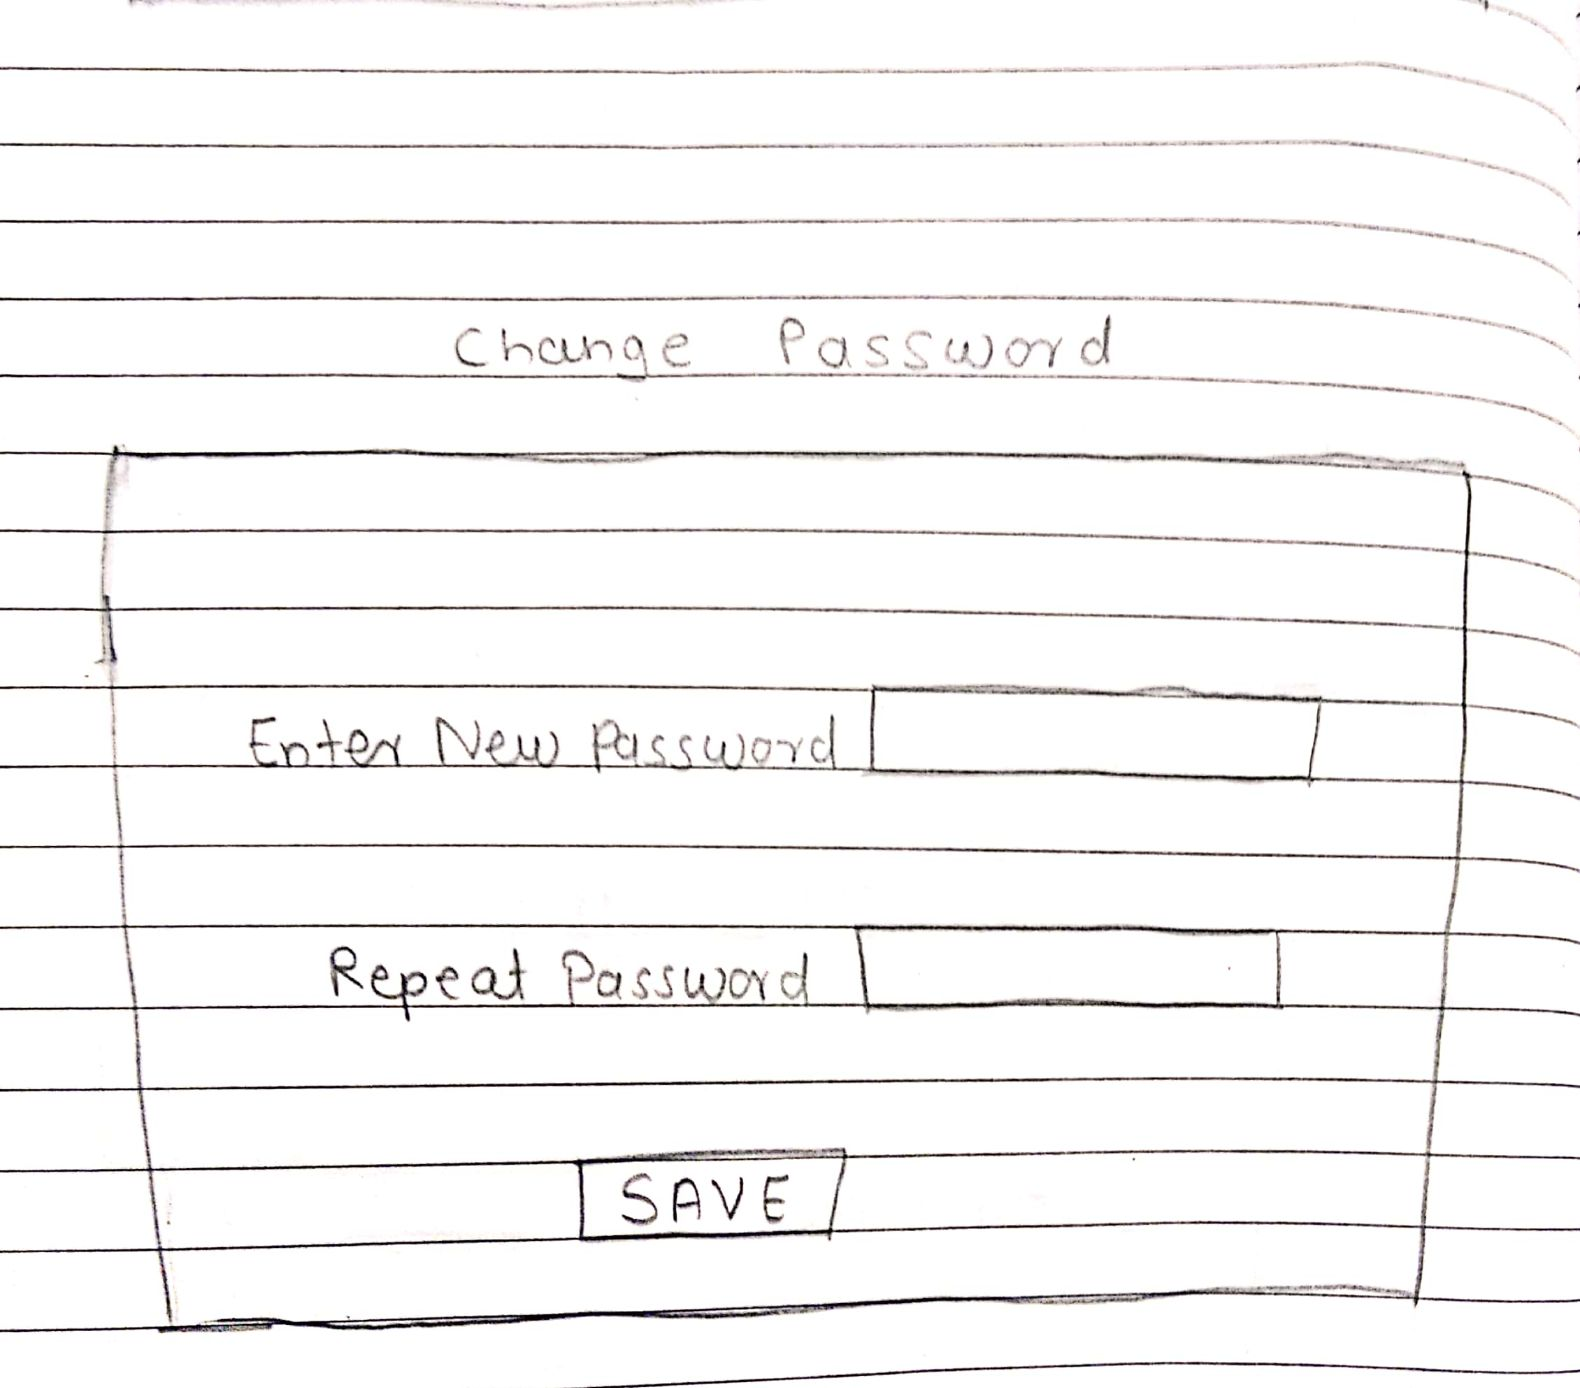 Change Password
Enter New Password
Repeat Password
SAVE